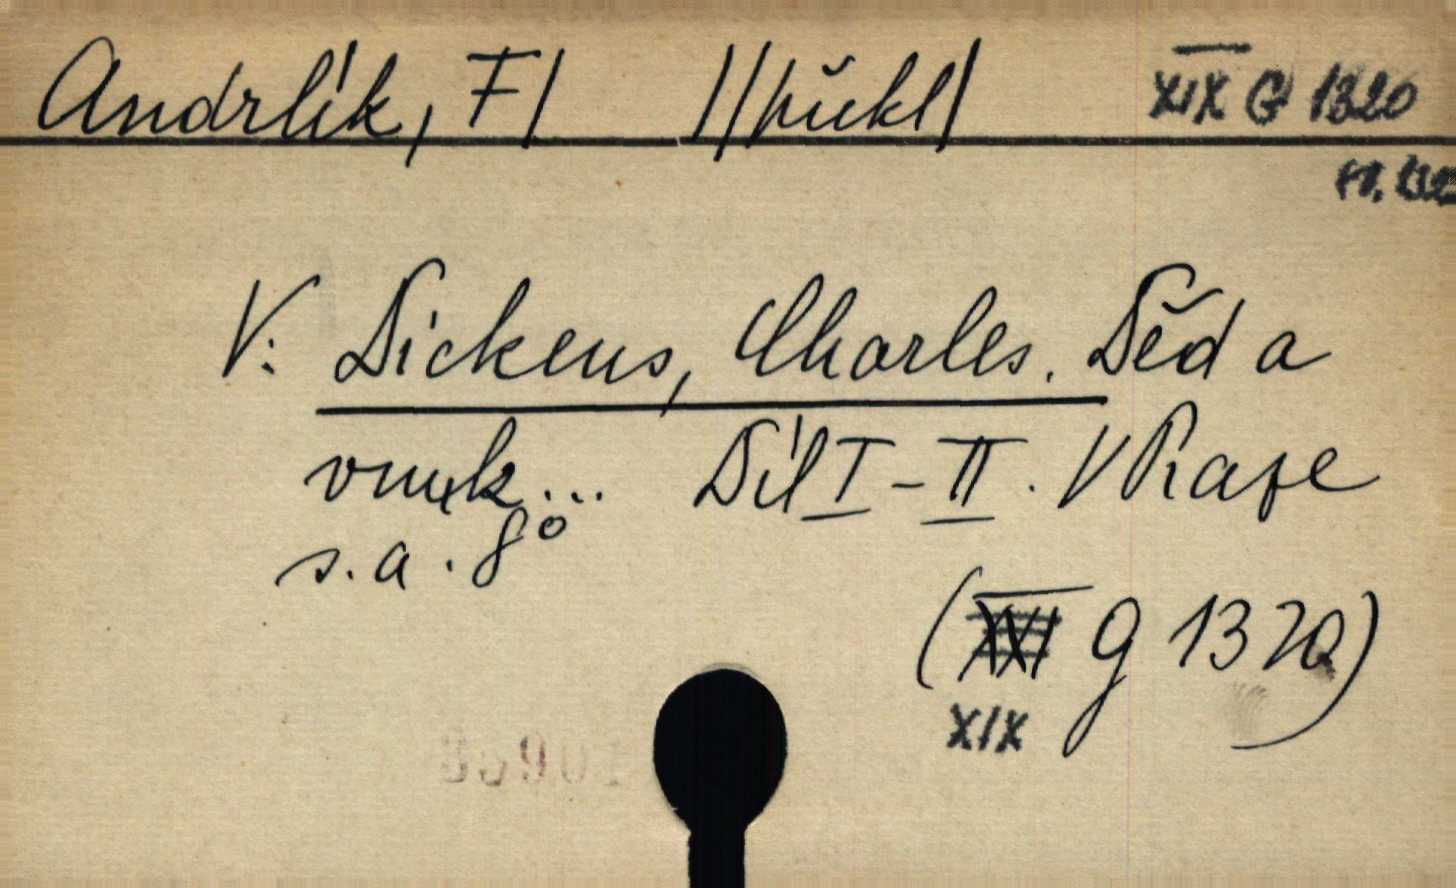 Andrlík, F/ //překl/ XIX G 1320
V: Dickens, Charles. Děd a
vnuk... Díl I - II. V Praze
s.a. 8°
(XVI G 1320)
XIX